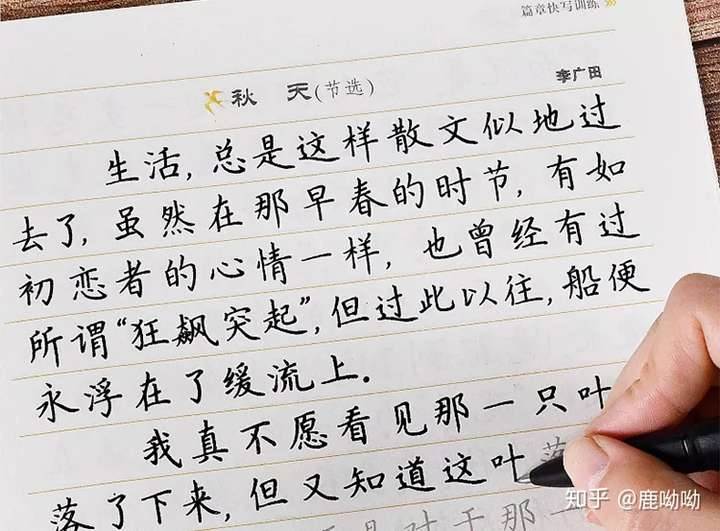 篇章快写训练
秋 天(节选)
李广田
生活,总是这样散文似地过
去了,虽然在那早春的时节,有如
初恋者的心情一样,也曾经有过
所谓“狂飙突起”,但过此以往,船便
永浮在了缓流上.
我真不愿看见那一只叶
落了下来,但又知道这叶落
是对于那一
知乎 @鹿呦呦